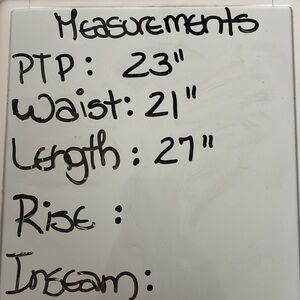 Measurements
PTP: 23"
Waist: 21"
Length: 27"
Rise:
Inseam: